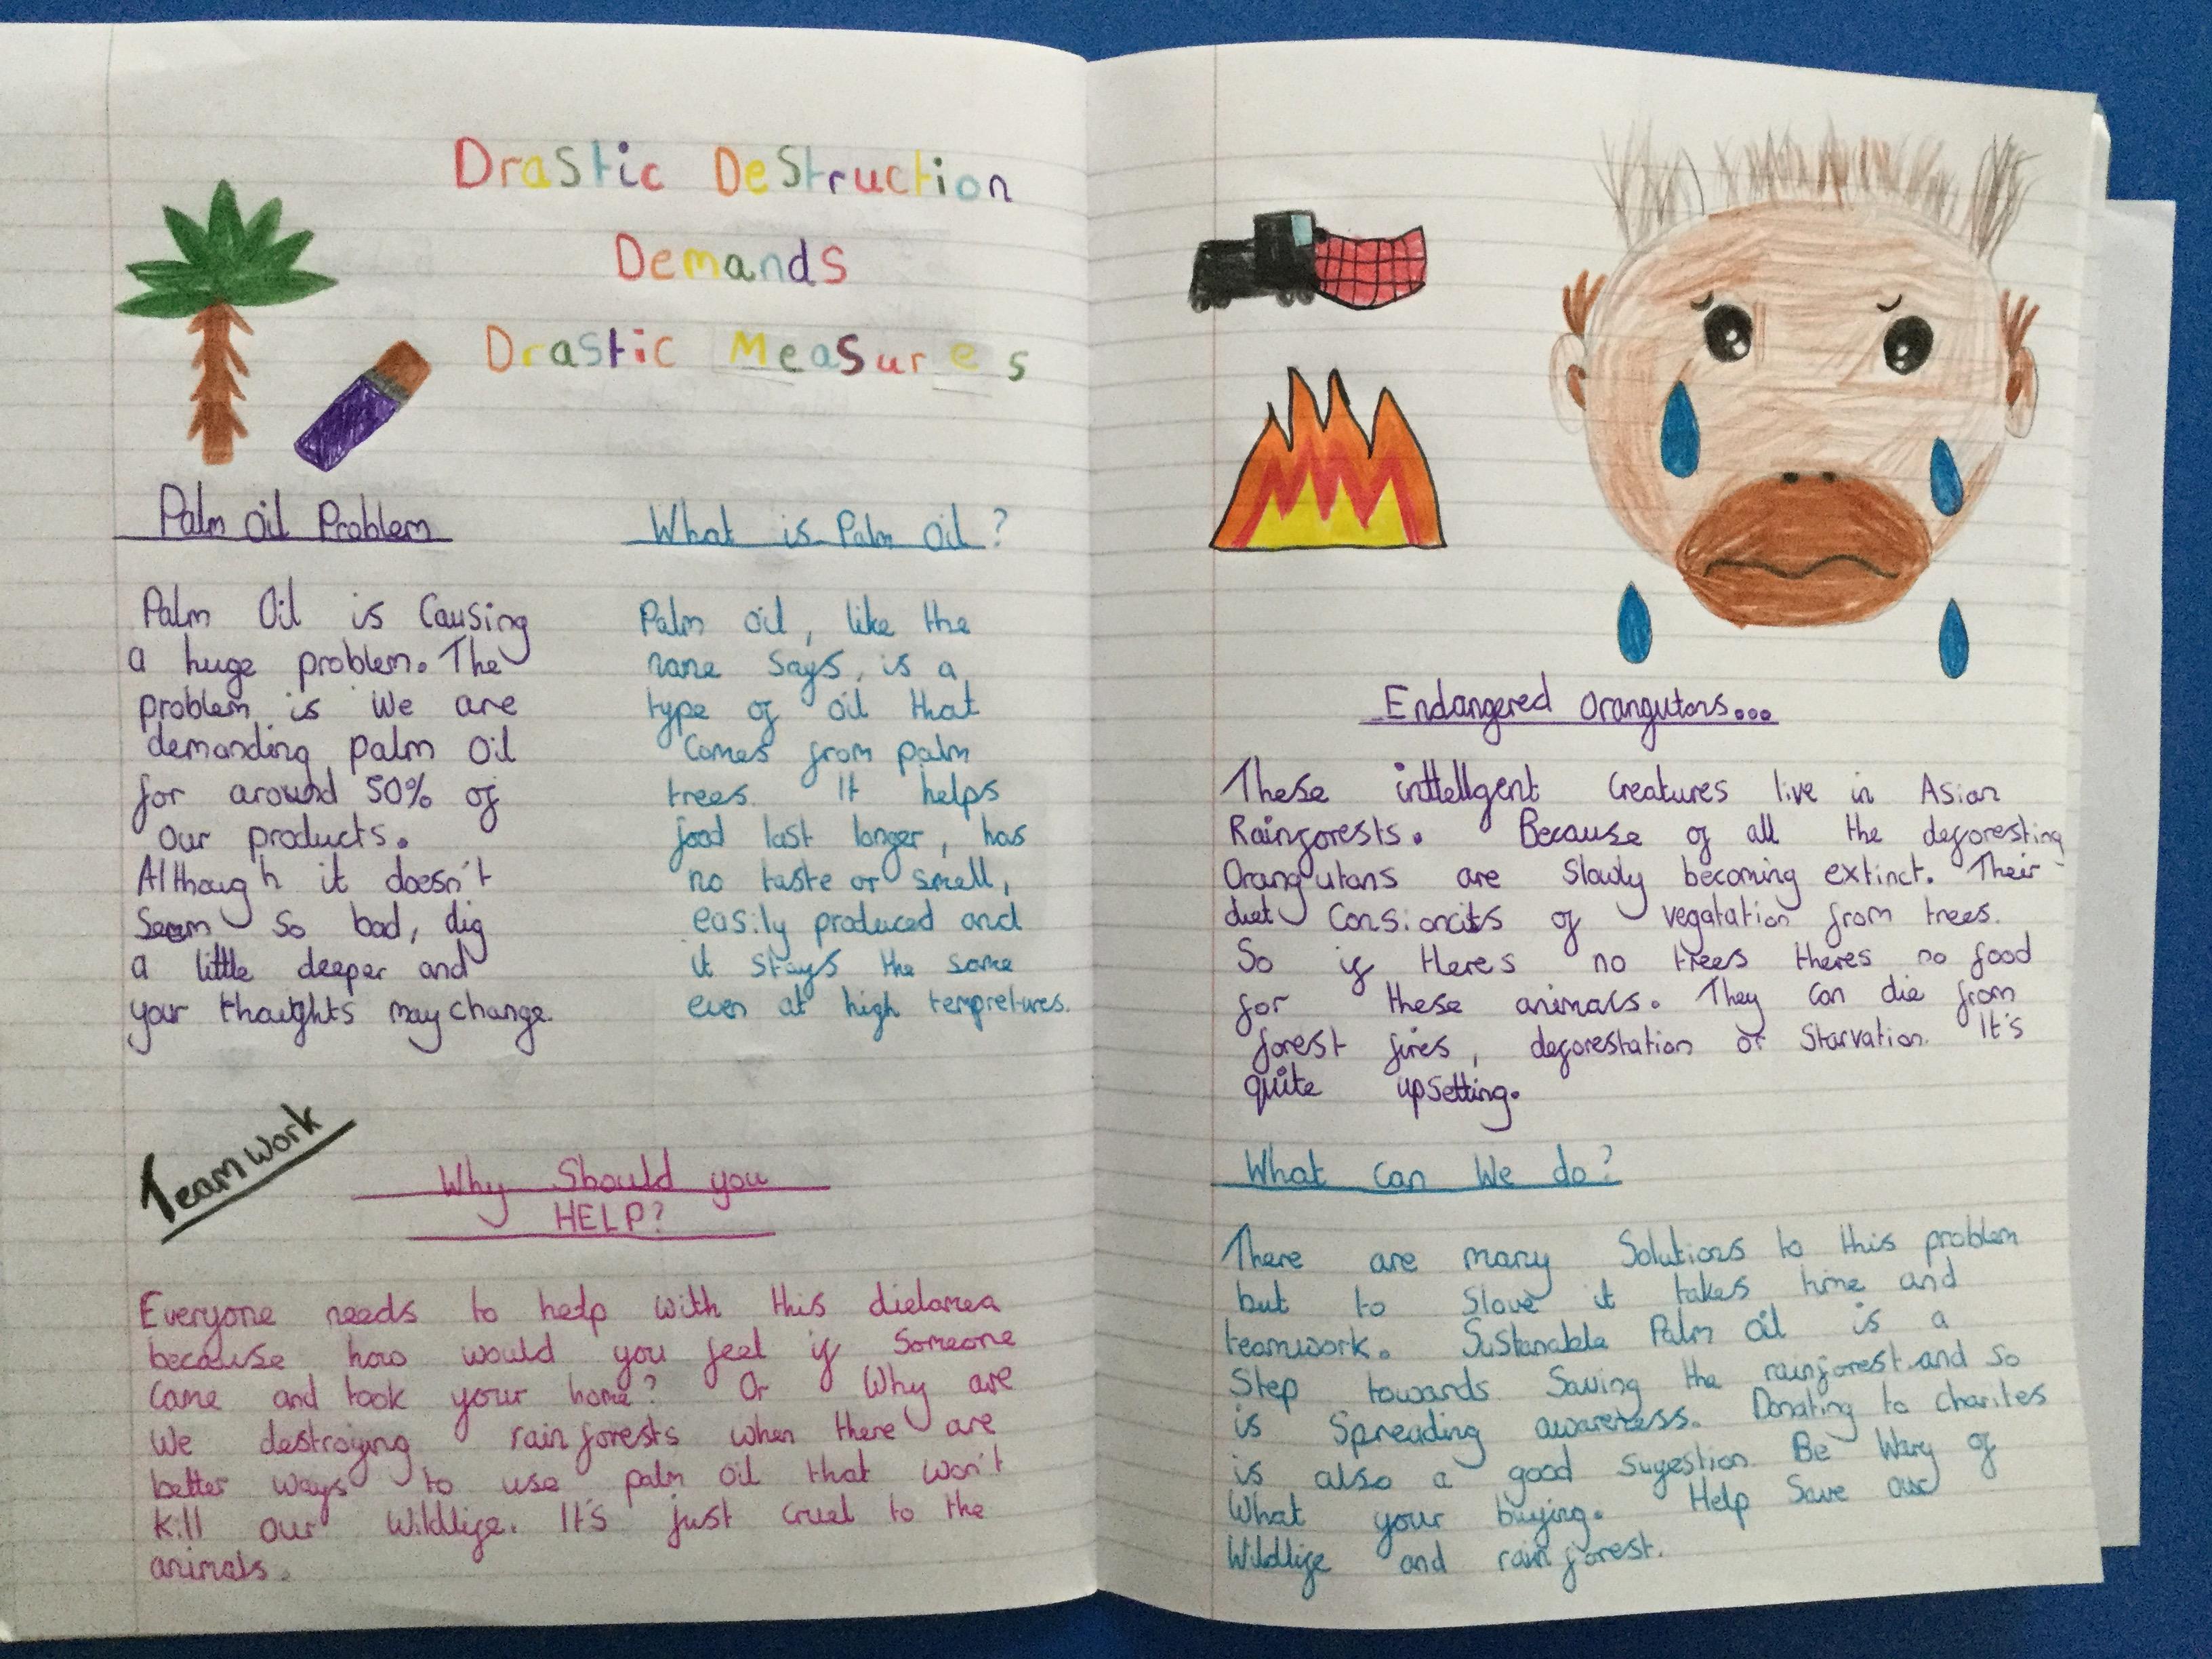 Drastic Destruction
Demands
Drastic Measures
Palm Oil Problem
Palm Oil is Causing
a huge problem. The
problem is We are
demanding palm Oil
for around 50% of
our products.
Although it doesn't
Seem so bad, dig
a little deeper and
your thoughts may change.
What is Palm Oil?
Palm oil, like the
name Says, is a
type of oil that
Comes from palm
trees. It helps
food last longer, has
no taste or smell,
easily produced and
it stays the same
even at high tempretures.
Teamwork
Why Should you
HELP?
Everyone needs to help with this dielamea
because how would you feel if Someone
Came and took your home? Or Why are
We destroying rainforests when there are
better ways to use palm oil that won't
Kill our Wildlife. It's just cruel to the
animals.
Endangered Orangutans...
These inttellgent Creatures live in Asian
Rainforests. Because of all the deforesting
Orangutans are Slowly becoming extinct. Their
diet of vegatation from trees.
So if theres no trees theres no food
for these animals. They can die from
forest fires, deforestation or Starvation. It's
quite upsetting.
What Can We do?
There are many Solutions to this problem
but to Slove it takes time and
teamwork. Sustanable Palm Oil is a
Step towards Saving the rainforest and so
is Spreading awareness. Donating to charites
is also a good sugestion. Be Wary of
What your buying. Help Save our
Wildlife and rainforest.